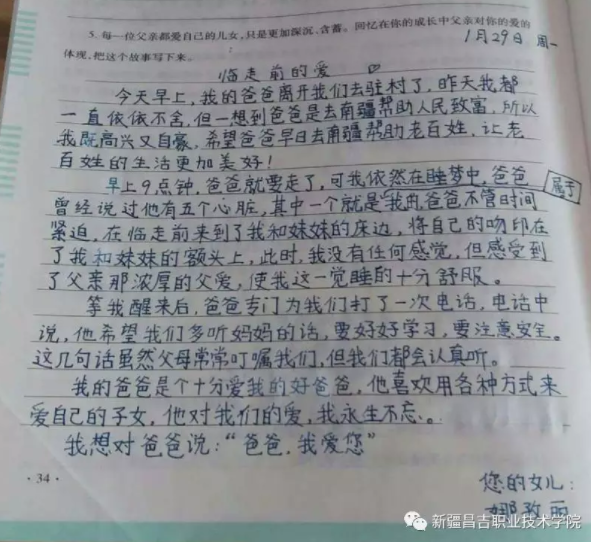 5. 每一位父亲都爱自己的儿女,只是更加深沉、含蓄。回忆在你的成长中父亲对你的爱的
体现,把这个故事写下来。
1月29日 周一
临走前的爱
今天早上,我的爸爸离开我们去驻村了,昨天我都
一直依依不舍,但一想到爸爸是去南疆帮助人民致富,所以
我既高兴又自豪,希望爸爸早日去南疆帮助老百姓,让老
百姓的生活更加美好!
早上9点钟,爸爸就要走了,可我依然在睡梦中,爸爸
曾经说过他有五个心脏,其中一个就是属于我的,爸爸不管时间
紧迫,在临走前来到了我和妹妹的床边,将自己的吻印在
了我和妹妹的额头上,此时,我没有任何感觉,但感受到
了父亲那浓厚的父爱,使我这一觉睡的十分舒服。
等我醒来后,爸爸专门为我们打了一次电话,电话中
说,他希望我们多听妈妈的话,要好好学习,要注意安全。
这几句话虽然父母常常叮嘱我们,但我们都会认真听。
我的爸爸是个十分爱我的好爸爸,他喜欢用各种方式来
爱自己的子女,他对我们的爱,我永生不忘。
我想对爸爸说:“爸爸,我爱您”
·34·
您的女儿:
娜孜丽
新疆昌吉职业技术学院